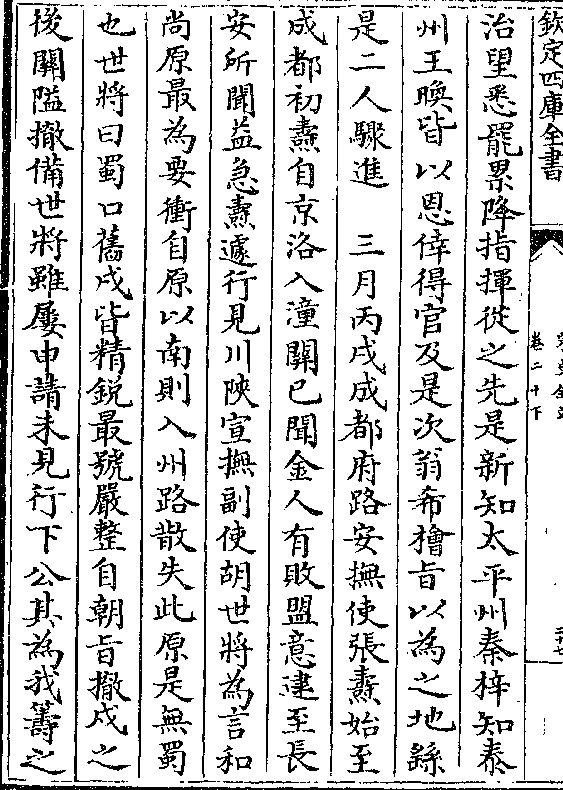 欽定四庫全書
卷二十下
治望悉罷累降指揮從之先是新知太平州秦梓知泰
州王㬇皆以恩倖得官及是次翁希檜旨以為之地繇
是二人驟進　三月丙戌成都府路安撫使張燾始至
成都初燾自京洛入潼關已聞金人有敗盟意逮至長
安所聞益急燾遽行見川陝宣撫副使胡世將為言和
尚原最為要衝自原以南則入州路散失此原是無蜀
也世將曰蜀口舊戍皆精鋭最號嚴整自朝旨撤戍之
後關隘撤備世將雖屢申請未見行下公其為我籌之